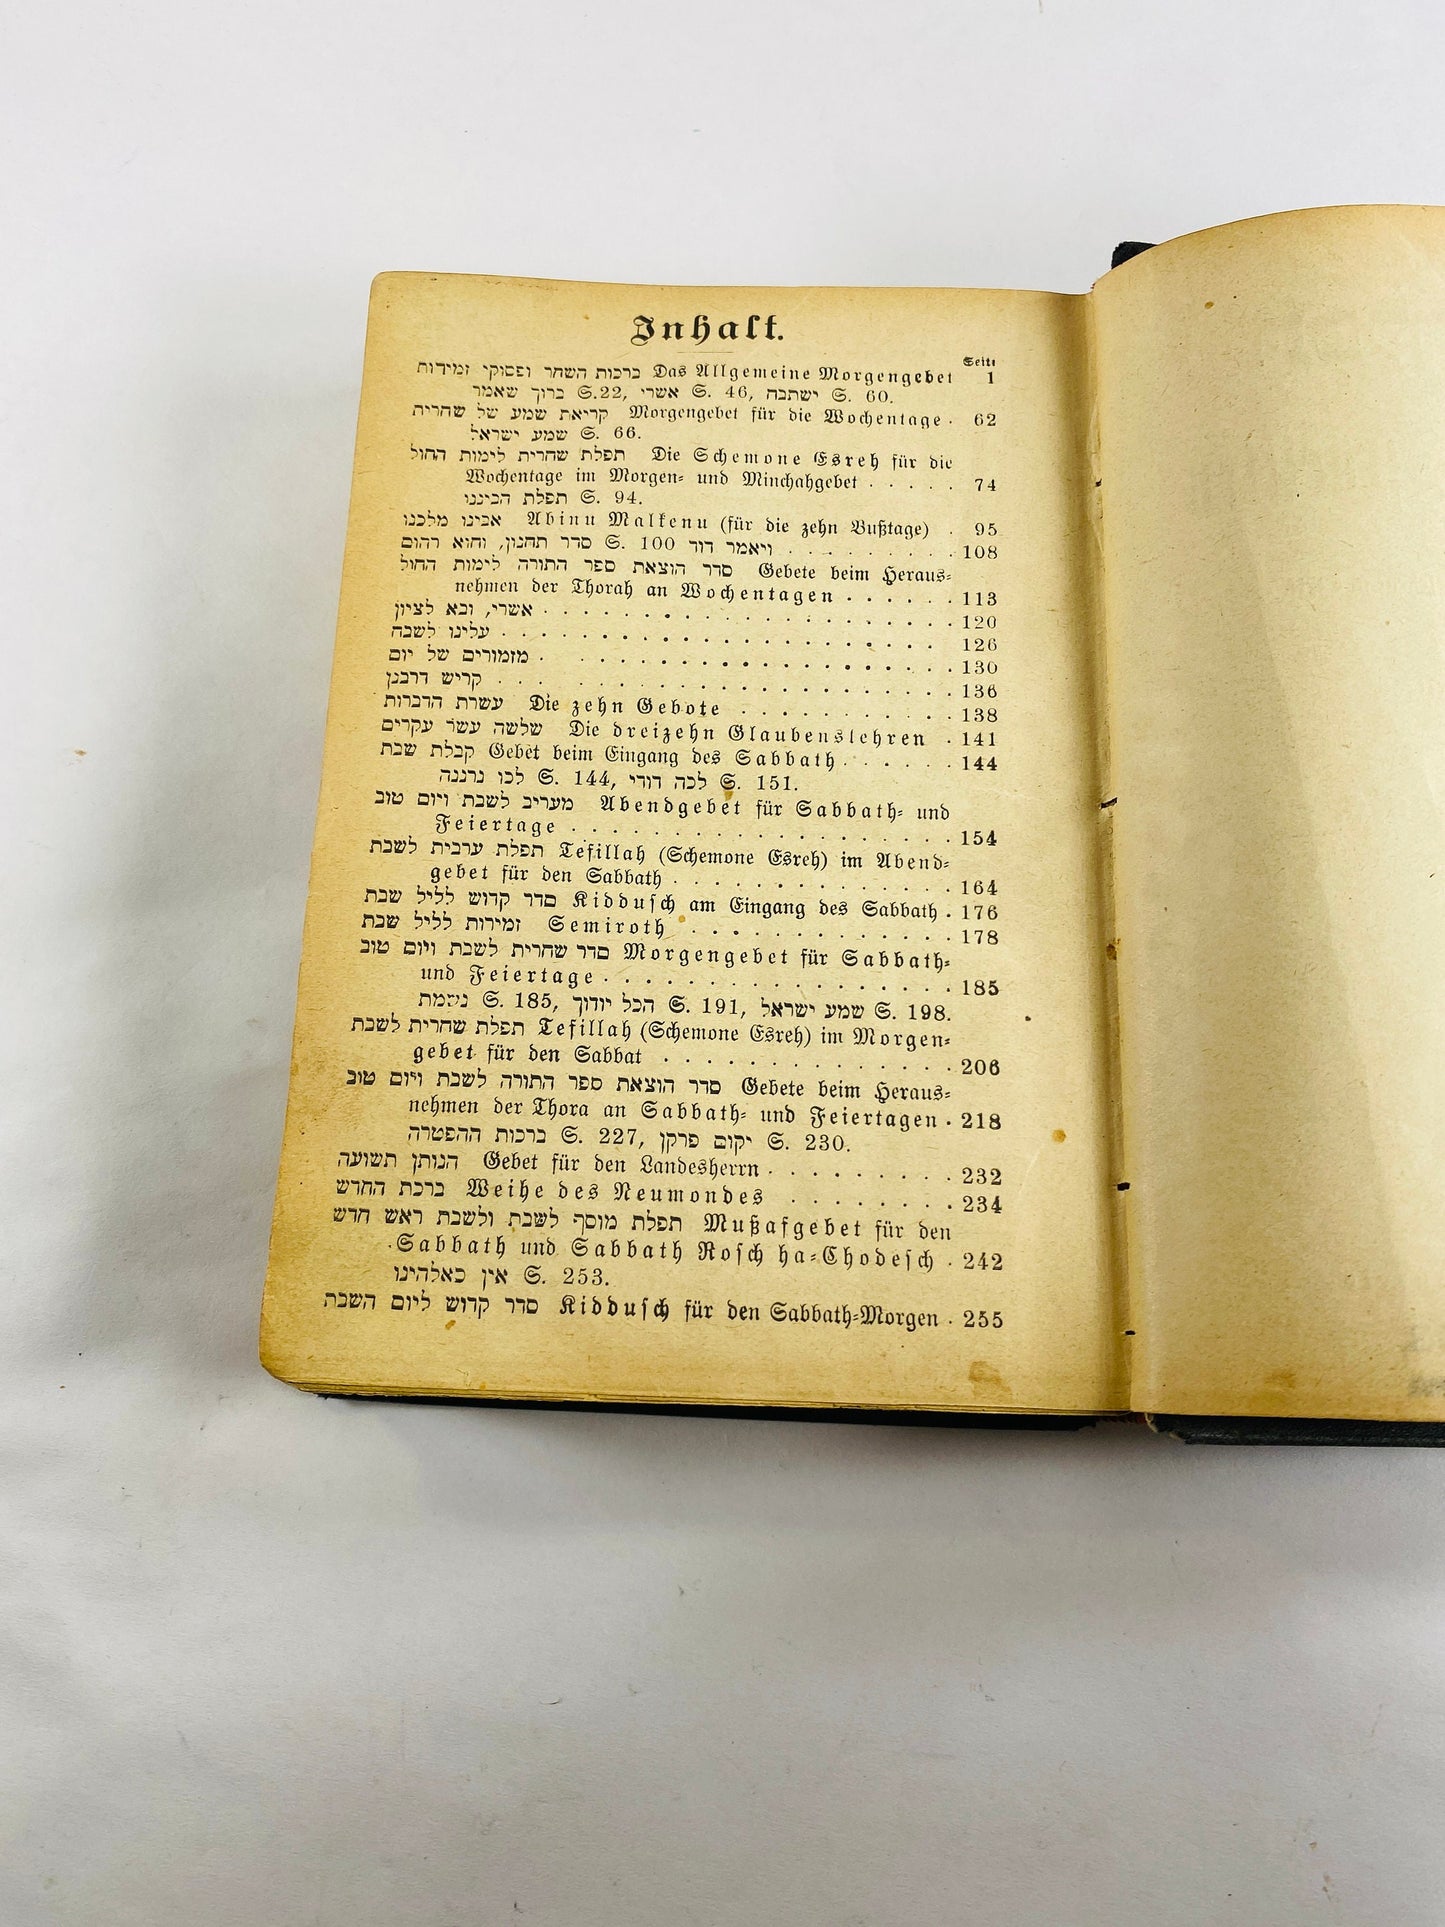 Inhalt.
Seite
ברכות השחר ופסוקי זמירות Das Allgemeine Morgengebet 1
ברוך שאמר S. 22, אשרי S. 46, ישתבח S. 60.
קריאת שמע של שחרית Morgengebet für die Wochentage . 62
שמע ישראל S. 66.
תפלת שחרית לימות החול Die Schemone Esreh für die
Wochentage im Morgen- und Minchahgebet . . . . . 74
תפלת הביננו S. 94.
אבינו מלכנו Abinu Malkenu (für die zehn Bußtage) . 95
סדר תחנון, והוא רחום S. 100 ויאמר דוד . . . . . . . . 108
סדר הוצאת ספר התורה לימות החול Gebete beim Heraus-
nehmen der Thorah an Wochentagen . . . . . . 113
אשרי, ובא לציון . . . . . . . . . . . . . . . . . . 120
עלינו לשבח . . . . . . . . . . . . . . . . . . . 126
מזמורים של יום . . . . . . . . . . . . . . . . . 130
קדיש דרבנן . . . . . . . . . . . . . . . . . . . 136
עשרת הדברות Die zehn Gebote . . . . . . . . . . 138
שלשה עשר עקרים Die dreizehn Glaubenslehren . 141
קבלת שבת Gebet beim Eingang des Sabbath . . . . . . 144
לכו נרננה S. 144, לכה דודי S. 151.
מעריב לשבת ויום טוב Abendgebet für Sabbath- und
Feiertage . . . . . . . . . . . . . . . . . 154
תפלת ערבית לשבת Tefillah (Schemone Esreh) im Abend-
gebet für den Sabbath . . . . . . . . . . . . . 164
סדר קדוש לליל שבת Kiddusch am Eingang des Sabbath . 176
זמירות לליל שבת Semiroth . . . . . . . . . . . . . 178
סדר שחרית לשבת ויום טוב Morgengebet für Sabbath-
und Feiertage . . . . . . . . . . . . . . . . . 185
נשמת S. 185, הכל יודוך S. 191, שמע ישראל S. 198.
תפלת שחרית לשבת Tefillah (Schemone Esreh) im Morgen-
gebet für den Sabbat . . . . . . . . . . . . . . 206
סדר הוצאת ספר התורה לשבת ויום טוב Gebete beim Heraus-
nehmen der Thora an Sabbath- und Feiertagen . 218
ברכות ההפטרה S. 227, יקום פרקן S. 230.
הנותן תשועה Gebet für den Landesherrn . . . . . . . . 232
ברכת החדש Weihe des Neumondes . . . . . . . . 234
תפלת מוסף לשבת ולשבת ראש חדש Mußafgebet für den
Sabbath und Sabbath Rosch ha-Chodesch . 242
אין כאלהינו S. 253.
סדר קדוש ליום השבת Kiddusch für den Sabbath-Morgen . 255